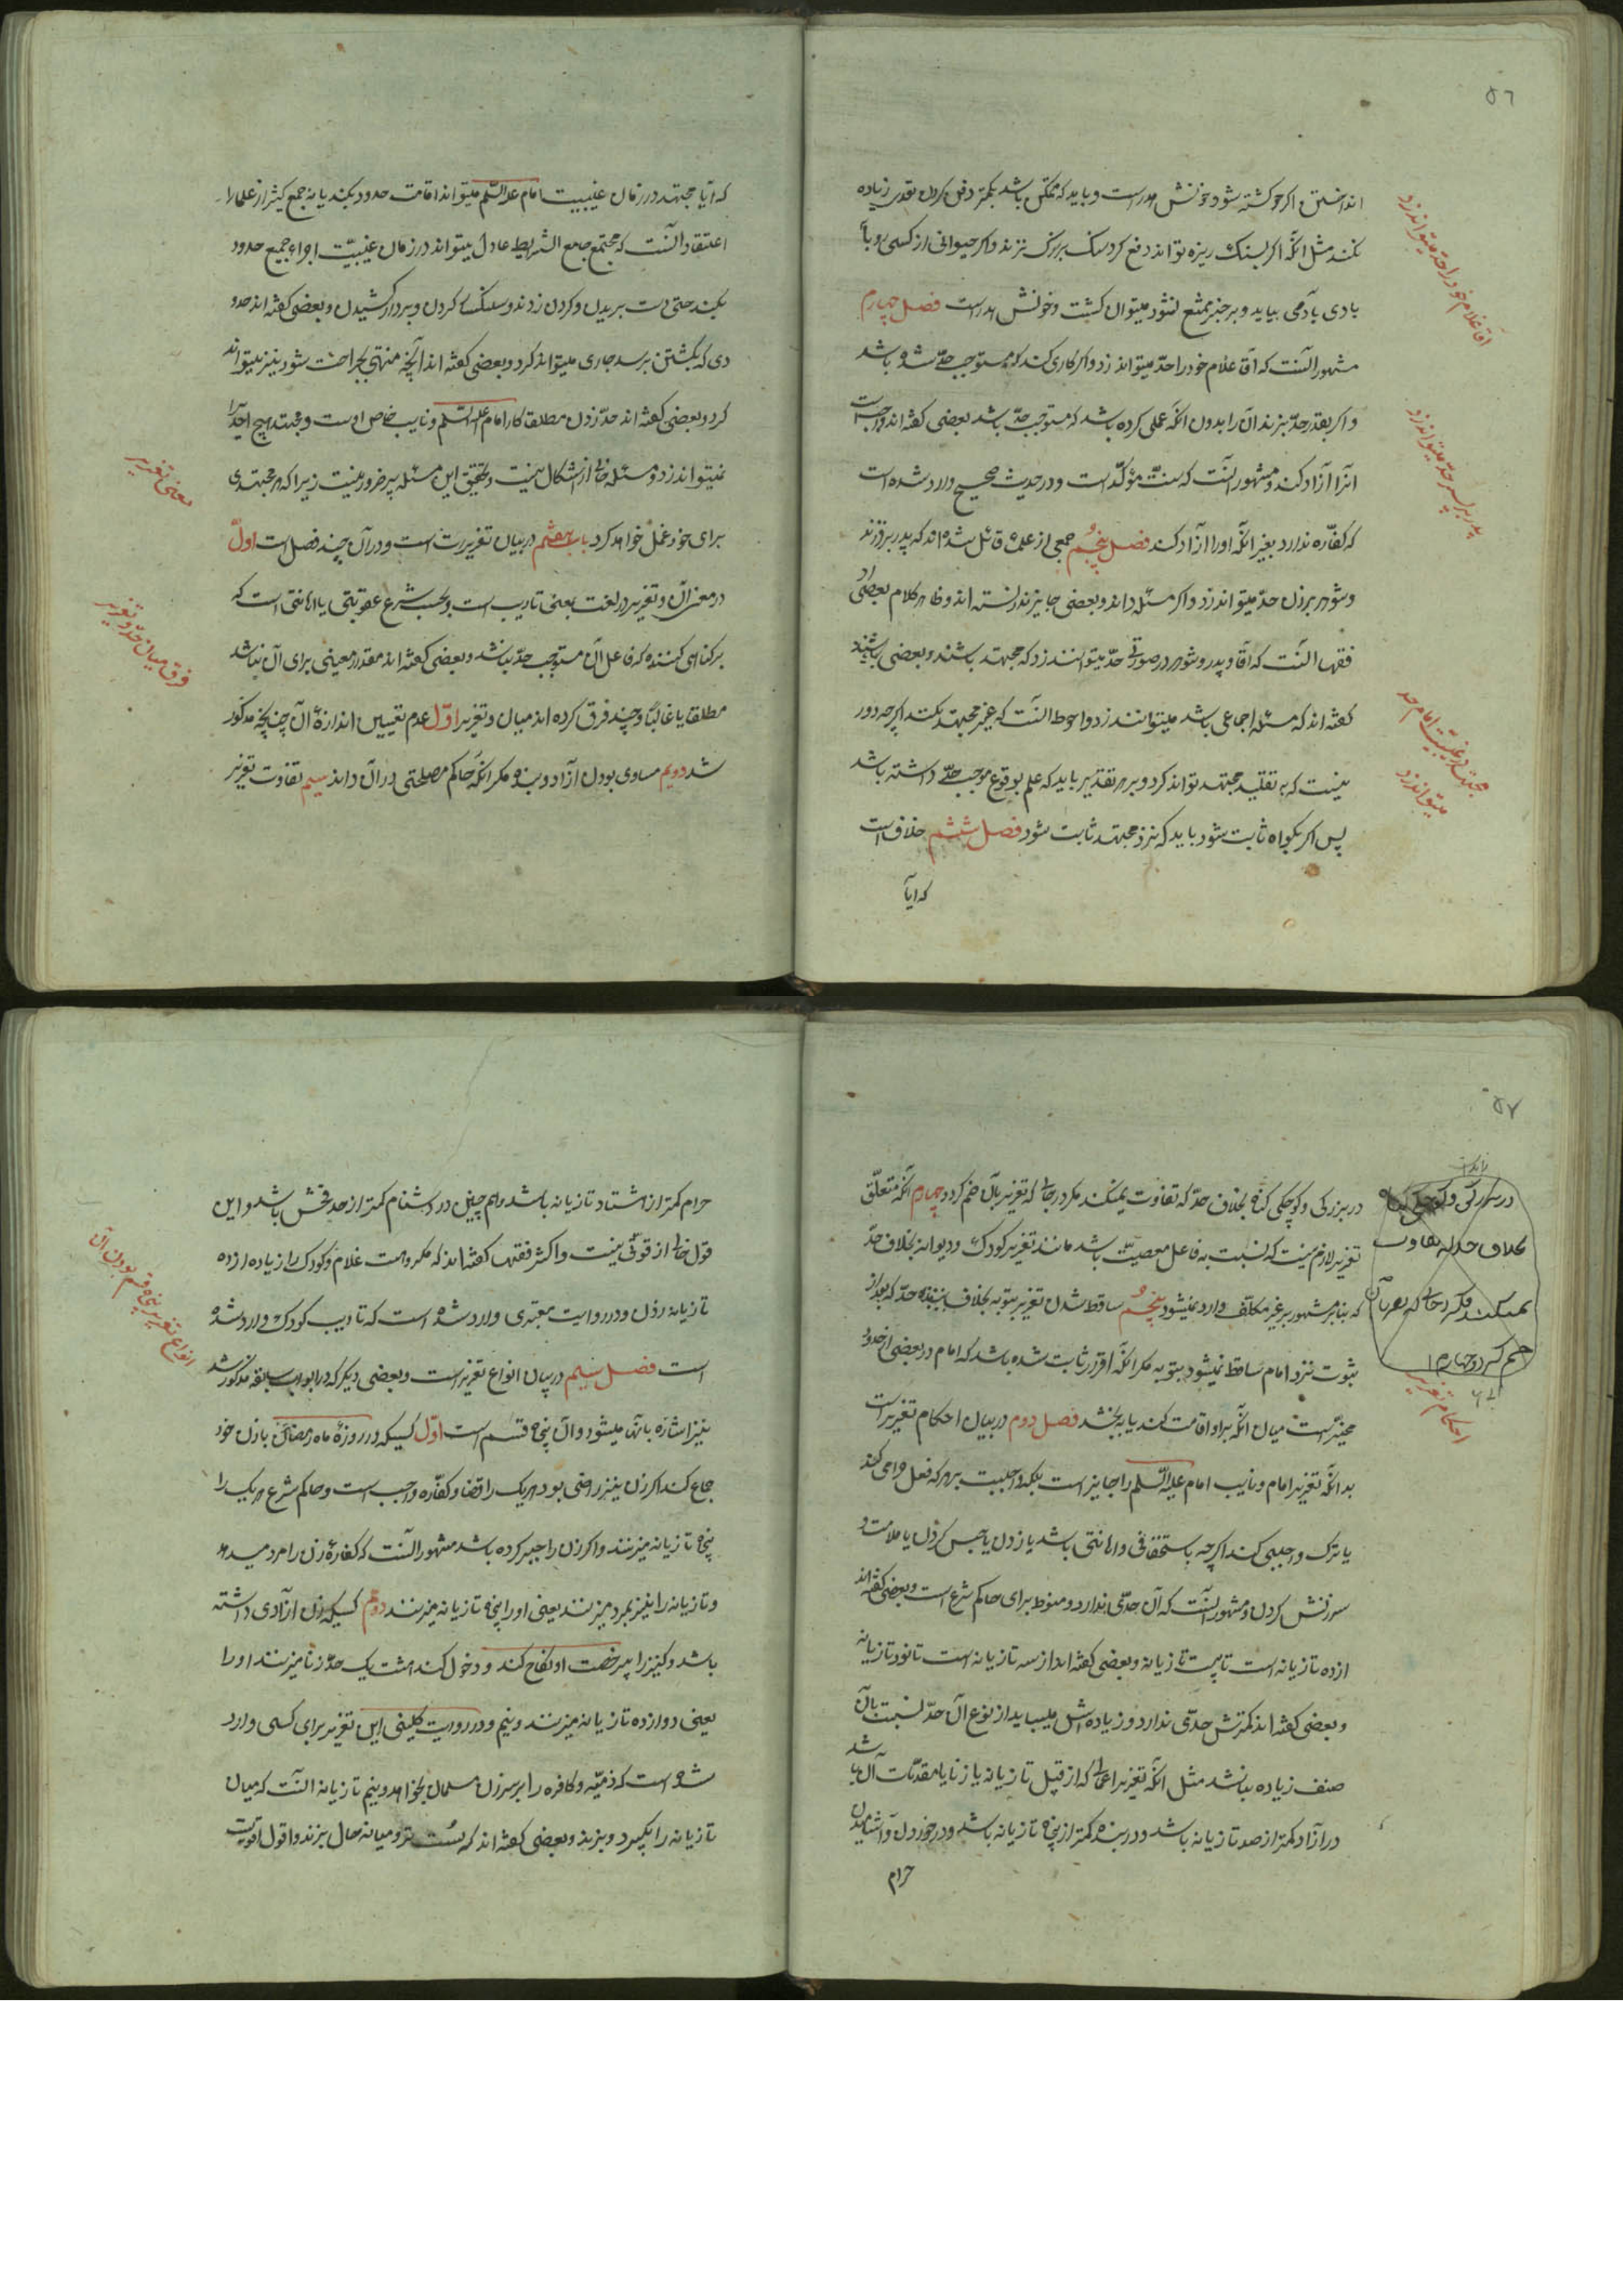 ٥٦
انداختن و اکر کشته شود خونش هدر است و باید که تا ممکن باشد بکمتر دفع کردن بقدر زیاده
نکند مثل انکه اکر بسنک ریزه تواند دفع کرد سنک بزرک نزند و اکر حیوانی از کسی رو با
بادی بآدمی بیاید و بر جز بمنع نشود میتوان کشت و خونش هدر است فصل چهارم
مشهور آنست که آقا غلام خود را حدّ میتواند زد و اکر کاری کند که مستوجب حدّ شده باشد
و اکر بقدر حدّ بزند آن را بدون انکه عملی کرده باشد که مستوجب حدّ باشد بعضی کفته‌اند واجبست
آنرا آزاد کند و مشهور آنست که سنّت مؤکّد است و در حدیث صحیح وارد شده است
که کفّاره ندارد بغیر انکه او را آزاد کند فصل پنجم جمعی از علما قائل شده‌اند که پدر بر فرزند
و شوهر بر زن حدّ میتواند زد و اکر مسئله داند و بعضی جایز ندانسته‌اند و ظاهر کلام بعضی از
فقها آنست که آقا و پدر و شوهر در صورتی حدّ میتوانند زد که مجتهد باشند و بعضی
کفته‌اند که مسئله اجماعی باشد میتوانند زد و احوط آنست که غیر مجتهد نکند اکرچه دور
نیست که به تقلید مجتهد تواند کرد و بر هر تقدیر باید که علم بوقوع موجب حدّ داشته باشد
پس اکر بکواه ثابت شود باید که نزد مجتهد ثابت شود فصل ششم خلاف است
که ایا
آقا غلام خود را حد میتواند زد
پدر بر پسر حد میتواند زد
مجتهد در غیبت امام حد
میتواند زد
که آیا مجتهد در زمان غیبت امام علیه السّلم میتواند اقامت حدود بکند یا نه جمع کثیر از علما را
اعتقاد آنست که مجتمع جامع الشرایط عادل میتواند در زمان غیبت اجراء جمیع حدود
بکند حتی دست بریدن و کردن زدن و سنکسار کردن و بردار کشیدن و بعضی کفته‌اند حدو
دی که بکشتن نرسد جاری میتواند کرد و بعضی کفته‌اند آنچه منتهی بجراحت شود نیز میتواند
کرد و بعضی کفته‌اند حدّ زدن مطلقا کار امام علیه السّلم و نایب خاص اوست و مجتهد هیچ احدی را
نمیتواند زد و مسئله خالی از اشکال نیست و تحقیق این مسئله پر ضرور نیست زیرا که هر مجتهدی
برای خود عمل خواهد کرد باب هفتم در بیان تعزیرت است و در آن چند فصل است اول
در معنی آن و تعزیر در لغت بمعنی تادیب است و بحسب شرع عقوبتی یا اهانتی است که
بر کناهی کننده که فاعل آن مستوجب حدّ نباشد و بعضی کفته‌اند مقدار معینی برای آن نباشد
مطلقا یا غالبا و چند فرق کرده‌اند میان و تعزیر اوّل عدم تعیین اندازهٔ آن چنانچه مذکور
شد دویم مساوی بودن آزاد و بنده مکر انکه حاکم مصلحتی در آن داند سیم تفاوت تعزیر
معنی تعزیر
فرق میان حدّ و تعزیر
٥٧
در بزرکی و کوچکی کناه بخلاف حدّ که تفاوت نمیکند مکر در جائی که تعزیر بآن ضم کردد چهارم انکه متعلّق
تعزیر لازم نیست که نسبت به فاعل معصیت باشد مانند تعزیر کودک و دیوانه بخلاف حدّ
که بنابر مشهور بر غیر مکلف وارد نمیشود پنجم ساقط شدن تعزیر بتوبه بخلاف حدّ که بعد از
ثبوت نزد امام ساقط نمیشود بتوبه مکر انکه اقرار ثابت شده باشد که امام در بعضی از حدود
مخیّر است میان انکه بر او اقامت کند یا به بخشد فصل دوم در بیان احکام تعزیر است
بدانکه تعزیر امام و نایب امام علیه السّلم را جایز است بلکه واجبست بر هر که فعل حرامی کند
یا ترک واجبی کند اکرچه باستخفافی و اهانتی باشد یا زدن یا حبس کردن یا ملامت و
سرزنش کردن و مشهور آنست که آن حدّی ندارد و منوط برای حاکم شرع است و بعضی کفته‌اند
از ده تازیانه است تا بیست تازیانه و بعضی کفته‌اند از سه تازیانه است تا نود تازیانه
و بعضی کفته‌اند کمترش حدّی ندارد و زیاده‌اش میباید از نوع آن حدّ نسبت بآن
صنف زیاده نباشد مثل انکه تعزیر اعمالی که از قبیل تازیانه یا زنا یا مقدّمات آن باشد
در آزاد کمتر از صد تازیانه باشد و در بنده کمتر از پنجاه تازیانه باشد و در خوردن و آشامیدن
حرام
در بزرکی و کوچکی کناه
بخلاف حد که تفاوت
نمیکند مکر در جائی که تعزیر بآن
ضم کردد چهارم
احکام تعزیر
حرام کمتر از هشتاد تازیانه باشد و هم چنین در دشنام کمتر از حد فحش باشد و این
قول خالی از قوّتی نیست و اکثر فقها کفته‌اند که مکروهست غلام و کودک را زیاده از ده
تازیانه زدن و در روایت معتبری وارد شده است که تادیب کودک وارد شده
است فصل سیم در بیان انواع تعزیر است و بعضی دیکر که در ابواب سابقه مذکور شد
نیز اشاره بآنها میشود و آن پنجاه قسم است اوّل کسیکه در روزهٔ ماه رمضان با زن خود
جماع کند اکر زن نیز راضی بود هر یک را قضا و کفّاره واجب است و حاکم شرع هر یک را
پنجاه تازیانه میزنند و اکر زن را جبر کرده باشد مشهور آنست که کفارهٔ زن را مرد میدهد
و تازیانه را نیز بمرد میزنند یعنی او را پنجاه تازیانه میزنند دوّم کسیکه زن آزادی داشته
باشد و کنیز را بیرخصت او نکاح کند و دخول کند هشت یک حدّ زنا میزنند او را
یعنی دوازده تازیانه میزنند و نیم و در روایت کلینی این تعزیر برای کسی وارد
شده است که ذمیّه و کافره را بر سر زن مسلمان بخواهد و نیم تازیانه آنست که میان
تازیانه را بکیرد و بزند و بعضی کفته‌اند که سست‌تر و میانه حال بزند و اول اقویست
انواع تعزیر پنجاه قسم بودن آن